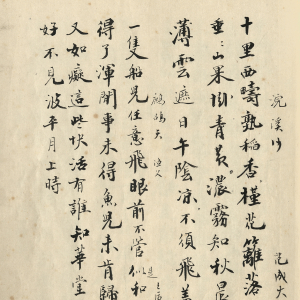 浣溪沙 范成大
十里西疇熟稻香槿花籬落
垂〻山果掛青黃濃霧知秋晨
薄雲遮日午陰涼不須飛
鷓鴣天 漁父
一隻船兒任意飛眼前不管是和
得了渾閒事未得魚兒未肯歸
又如癡這些快活有誰知華堂
好不見波平月上時